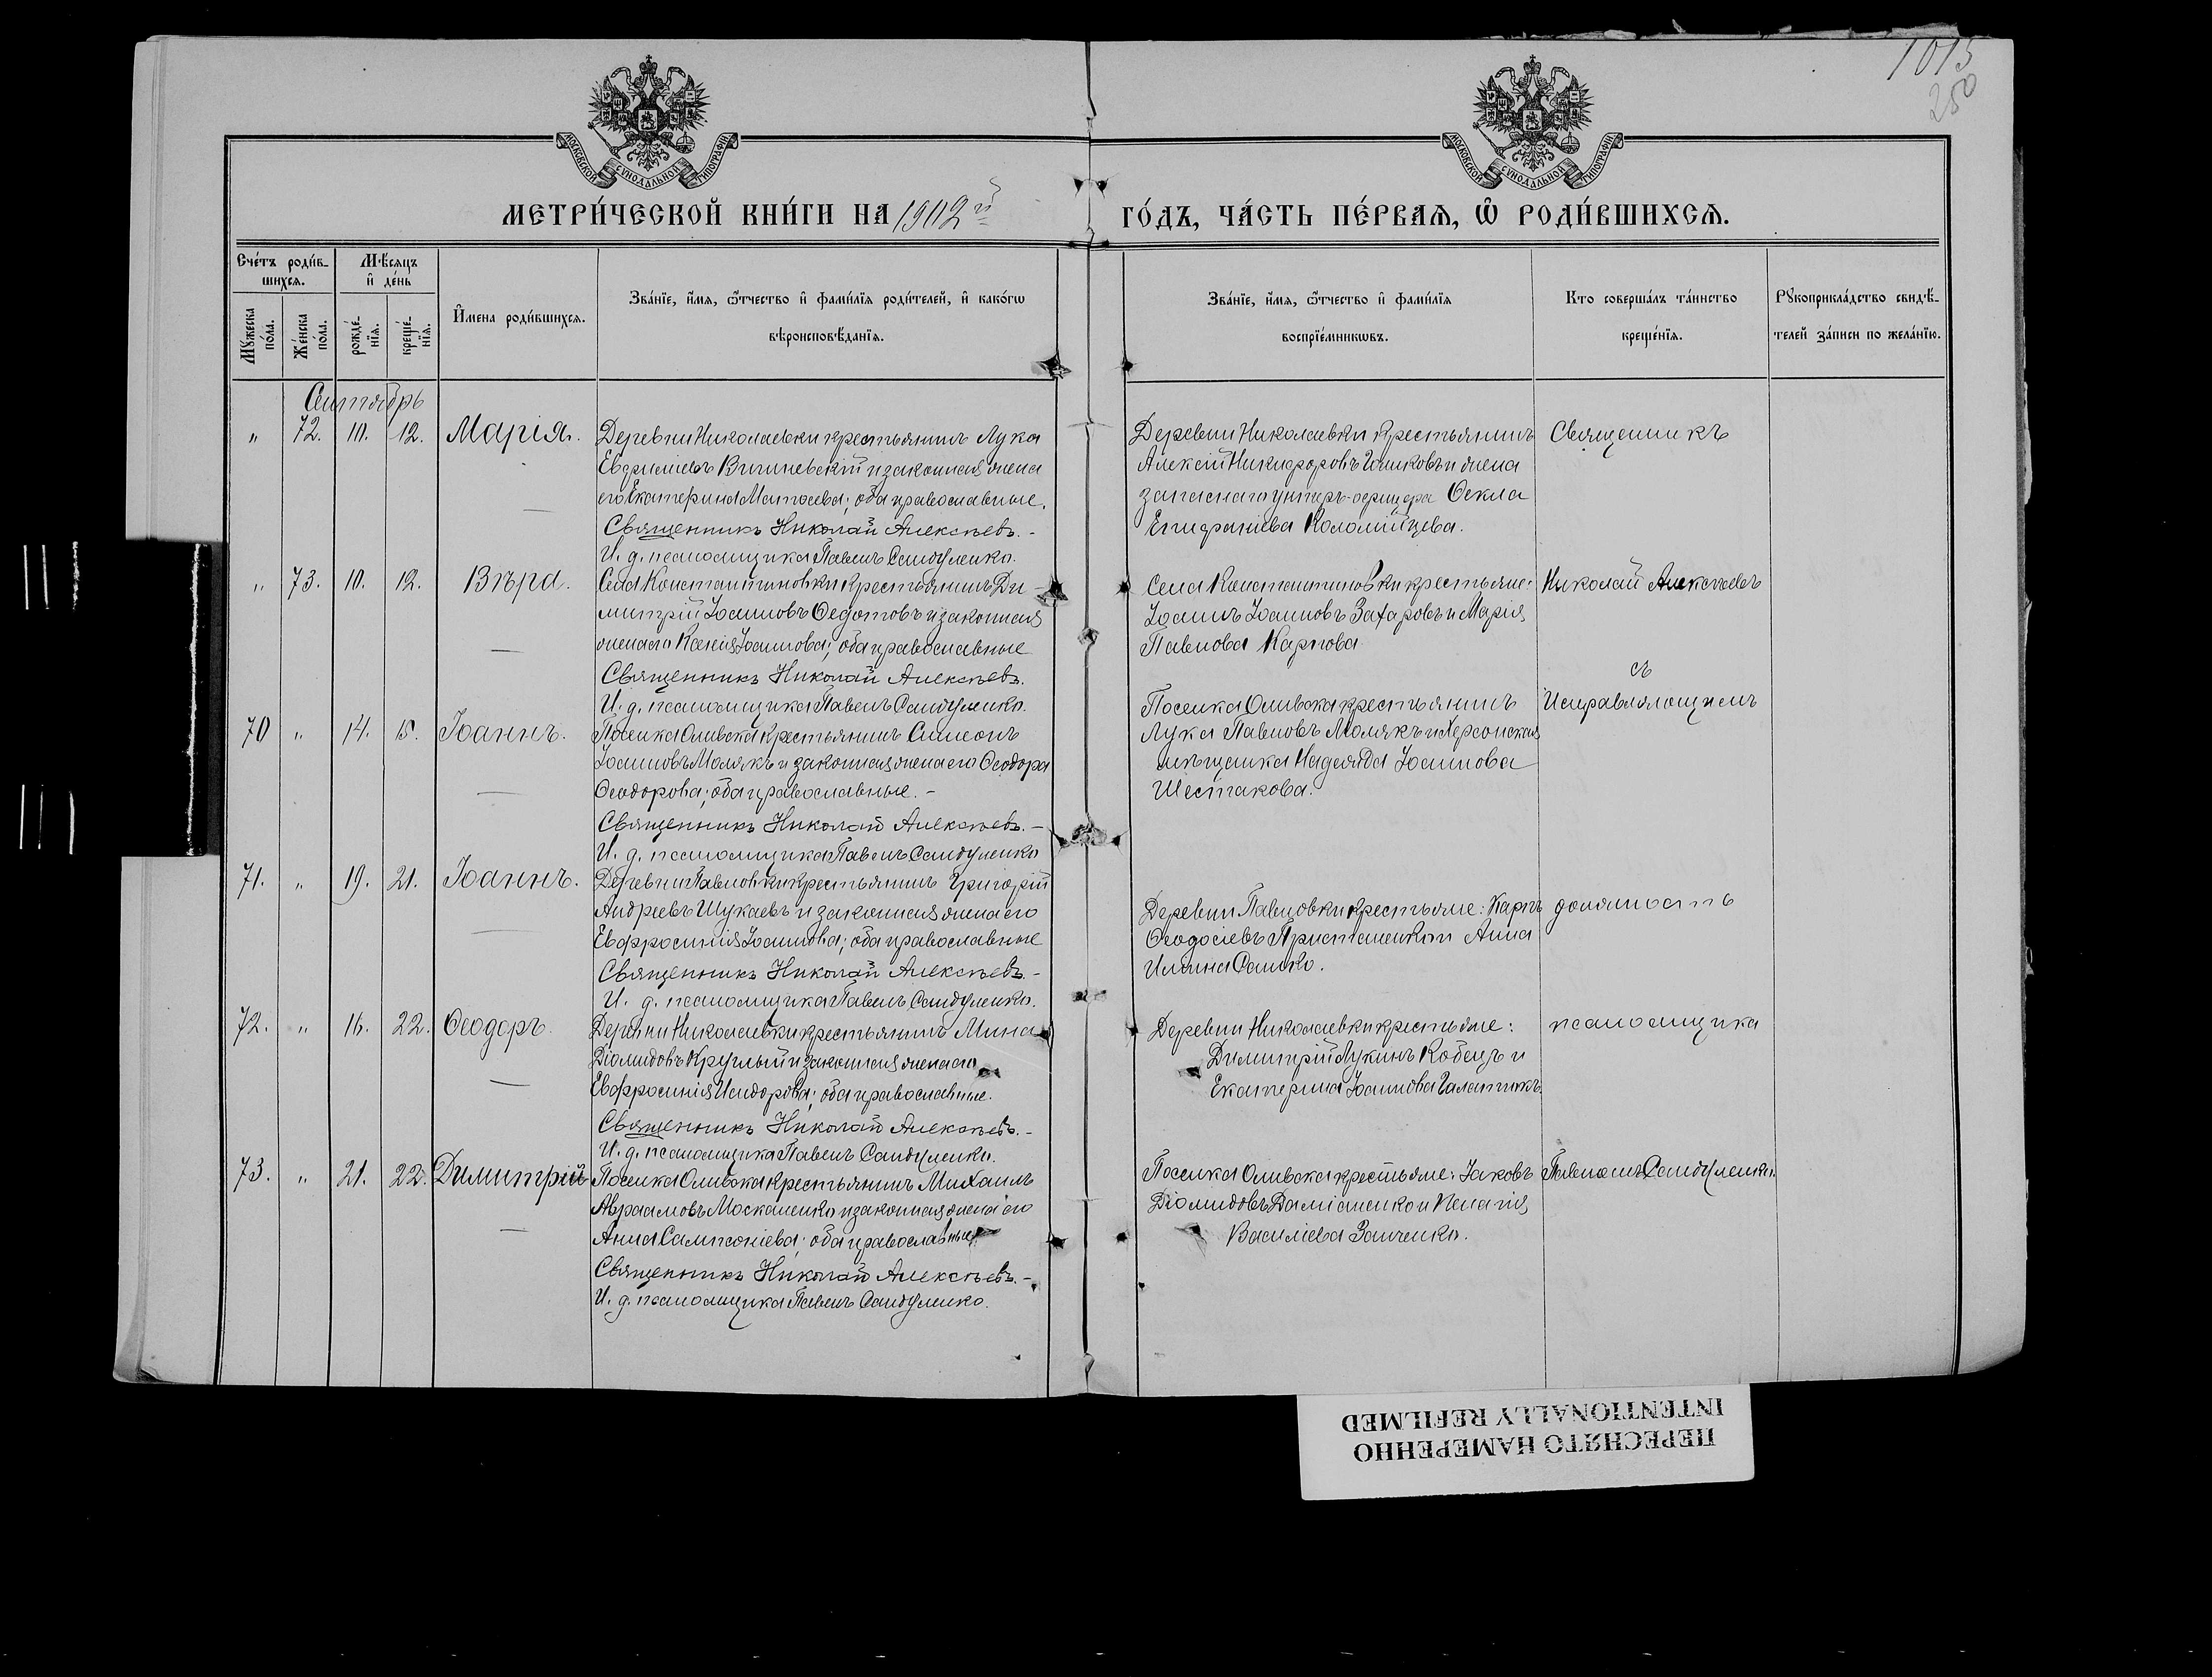 1015
250
МОСКОВСКОЙ СѴНОДАЛЬНОЙ ТИПОГРАФІИ
МОСКОВСКОЙ СѴНОДАЛЬНОЙ ТИПОГРАФІИ
МЕТРИ́ЧЕСКОЙ КНИ́ГИ НА 1902й
ГО́ДЪ, ЧА́СТЬ ПЕ́РВАЯ, Ѡ РОДИ́ВШИХСЯ.
Сче́тъ роди́в-
шихся.
Мꙋ́жеска по́ла.
Же́нска по́ла.
Мѣ́сяцъ
и де́нь
рожде́-
нїя.
креще́-
нїя.
И҆мена роди́вшихся.
Зва́нїе, и҆́мя, ѻ҆́тчество и҆ фами́лїя роди́телей, и҆ како́гѡ
вѣроисповѣ́данїя.
Зва́нїе, и҆́мя, ѻ҆́тчество и҆ фами́лїя
воспрїе́мникѡвъ.
Кто соверша́лъ та́инство
креще́нїя.
Рꙋкоприкла́дство свидѣ́-
телей за́писи по жела́нїю.
Сентябрь
" 72. 10. 12. Марія.
Деревни Николаевки крестьянинъ Лука
Евфиміевъ Вишневскій и законная жена
его Екатерина Матѳеева; оба православные.
Священникъ Николай Алексѣевъ.-
И. д. псаломщика Павелъ Сандуленко.
Деревни Николаевки крестьянинъ
Алексій Никифоровъ и жена
запаснаго унтеръ-офицера Ѳекла
Епифаніева Коломійцева.
Священникъ
" 73. 10. 12. Вѣра.
Села Константиновки крестьянинъ Ди-
митрій Іоанновъ Ѳедотовъ и законная
жена его Ксенія Іоаннова; оба православные
Священникъ Николай Алексѣевъ.
И. д. псаломщика Павелъ Сандуленко.
Села Константиновки крестьяне:
Іоаннъ Іоанновъ Захаровъ и Марія
Павлова Карпова
Николай Алексѣевъ
съ
70 " 14. 15. Іоаннъ.
Поселка Оливска крестьянинъ Симеонъ
Іоанновъ Молякъ и законная жена его Ѳеодора
Ѳеодорова; оба православные.-
Священникъ Николай Алексѣевъ.-
И. д. псаломщика Павелъ Сандуленко
Поселка Оливска крестьянинъ
Лука Павловъ Молякъ и Херсонская
мѣщанка Надежда Іоаннова
Шестакова.
Исправляющимъ
71. " 19. 21. Іоаннъ.
Деревни Павловки крестьянинъ Григорій
Андреевъ Шукаевъ и законная жена его
Евфросинія Іоаннова; оба православные
Священникъ Николай Алексѣевъ.-
И. д. псаломщика Павелъ Сандуленко.
Деревни Павловки крестьяне: Карпъ
Ѳеодосіевъ и Анна
Ильина Сашко.
должность
72. " 16. 22. Ѳеодоръ.
Деревни Николаевки крестьянинъ Мина
Діомидовъ Круглый и законная жена его
Евфросинія Исидорова; оба православные.
Священникъ Николай Алексѣевъ.-
И. д. псаломщика Павелъ Сандуленко.
Деревни Николаевки крестьяне:
Димитрій Лукинъ Кобецъ и
Екатерина Іоаннова Галатникъ.
псаломщика
73. " 21. 22. Димитрій
Поселка Оливска крестьянинъ Михаилъ
Авраамовъ Москаленко и законная жена его
Анна Сампсоніева; оба православные
Священникъ Николай Алексѣевъ.-
И. д. псаломщика Павелъ Сандуленко.
Поселка Оливска крестьяне: Іаковъ
Діомидовъ Даміаненко и Пелагія
Василіева Заиченко.
Павломъ Сандуленко.
ПЕРЕСНЯТО НАМЕРЕННО
INTENTIONALLY REFILMED